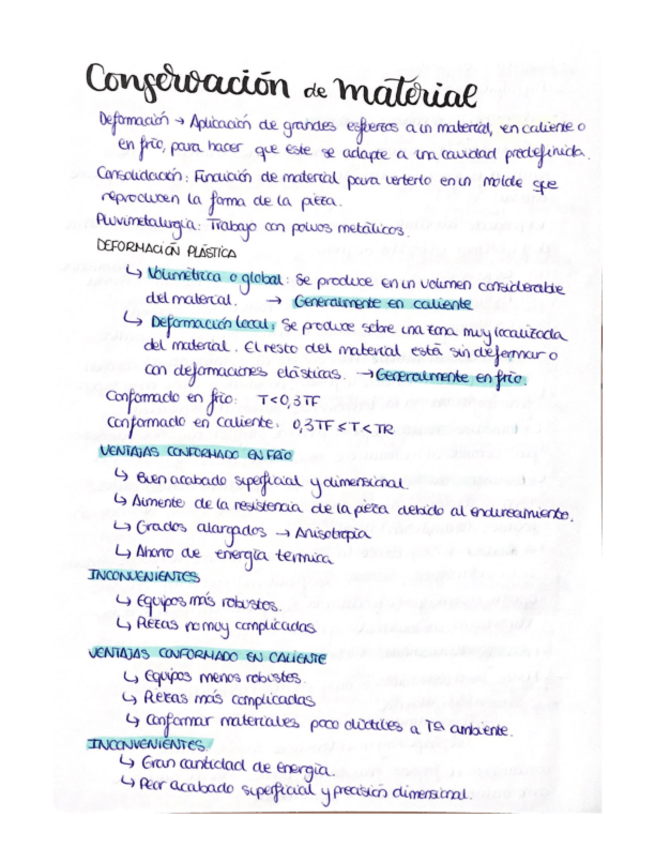 Conservación de material
Deformación → Aplicación de grandes esfuerzos a un material, en caliente o
en frío, para hacer que este se adapte a una cavidad predefinida.
Consolidación: Finalización de material para verterlo en un molde que
reproducen la forma de la pieza.
Pluvimetalurgia: Trabajo con polvos metálicos.
DEFORMACIÓN PLÁSTICA
↳ Volumétrica o global: Se produce en un volumen considerable
del material. → Generalmente en caliente
↳ Deformación local: Se produce sobre una zona muy localizada
del material. El resto del material está sin deformar o
con deformaciones elásticas. → Generalmente en frío.
Conformado en frío: T<0,3TF
Conformado en caliente: 0,3TF ≤ T < TR
VENTAJAS CONFORMADO EN FRÍO
↳ Buen acabado superficial y dimensional.
↳ Aumento de la resistencia de la pieza debido al endurecimiento.
↳ Grados alargados → Anisotropia
↳ Ahorro de energía termica
INCONVENIENTES
↳ Equipos más robustos.
↳ Piezas no muy complicadas
VENTAJAS CONFORMADO EN CALIENTE
↳ Equipos menos robustos.
↳ Piezas más complicadas
↳ Conformar materiales poco dúctiles a Tª ambiente.
INCONVENIENTES.
↳ Gran cantidad de energía.
↳ Peor acabado superficial y precisión dimensional.